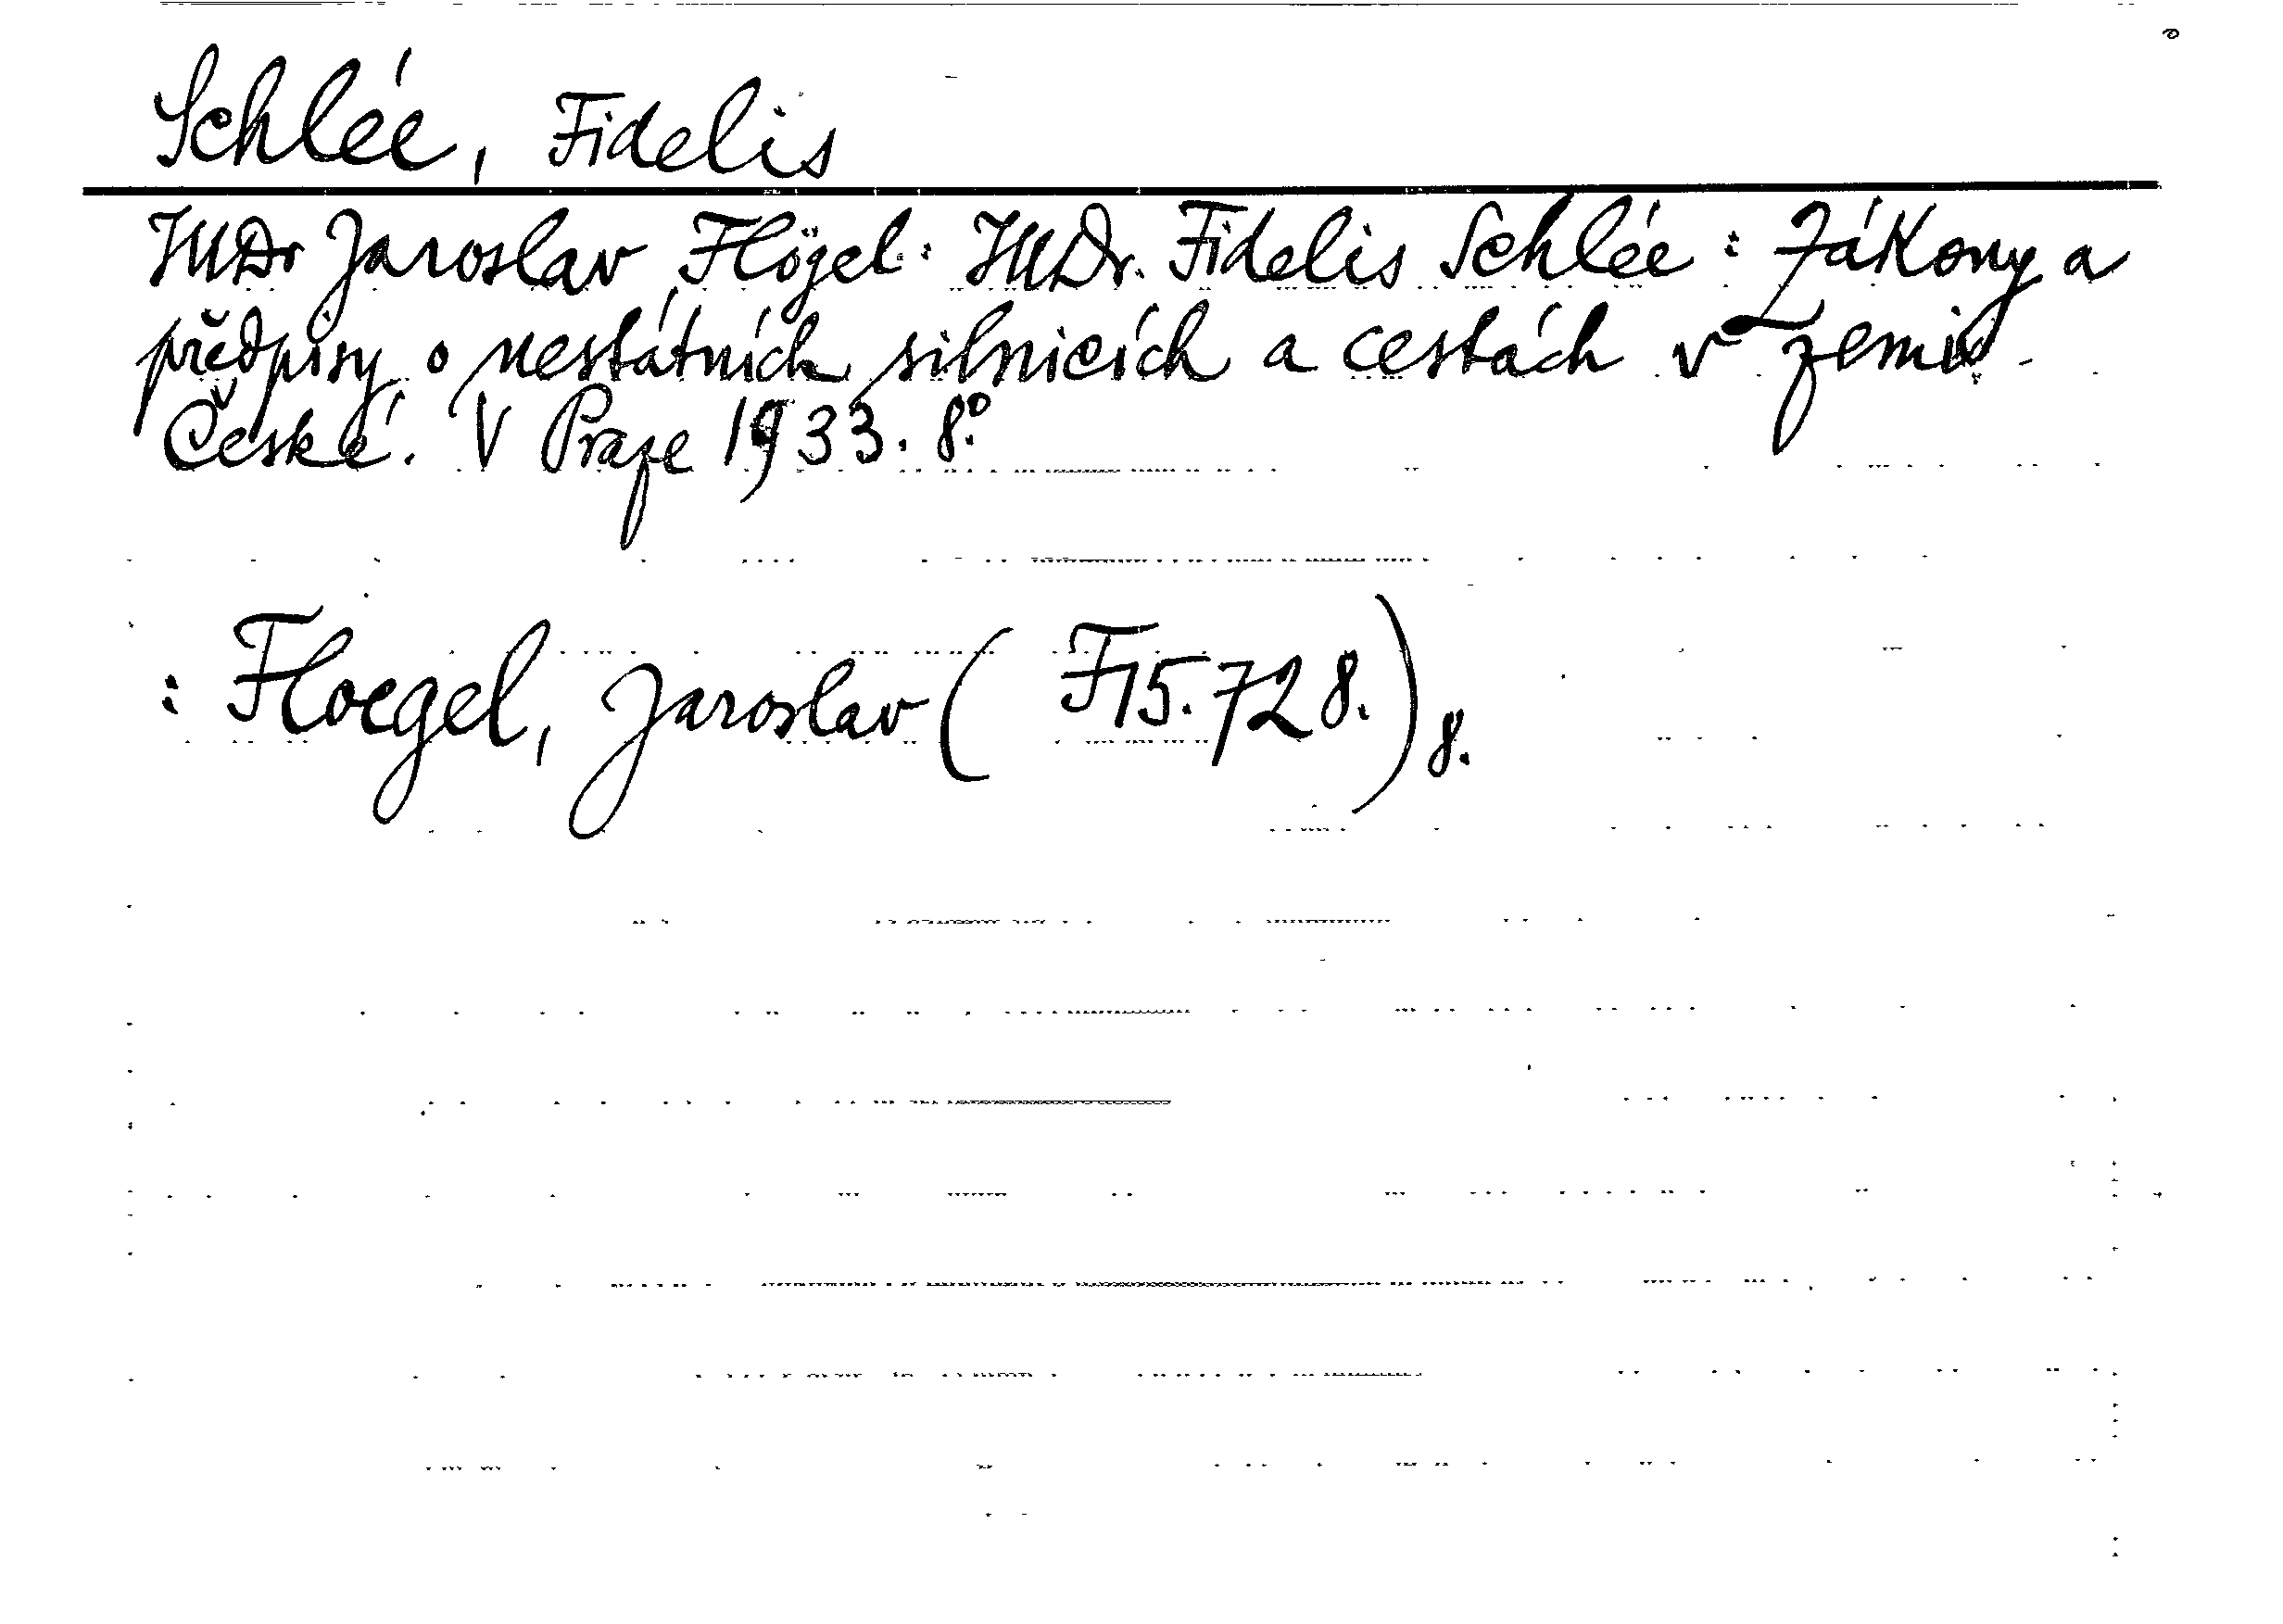 Schlée, Fidelis
JUDr Jaroslav Flögel: JUDr. Fidelis Schlée: Zákony a
předpisy o nestátních silnicích a cestách v zemi
České. V Praze 1933. 8°.
: Floegel, Jaroslav ( F 15.728.) 8.